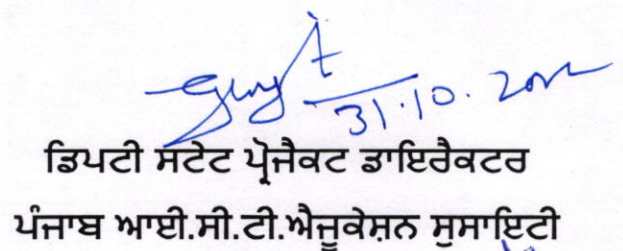 31.10.2022
ਡਿਪਟੀ ਸਟੇਟ ਪ੍ਰੋਜੈਕਟ ਡਾਇਰੈਕਟਰ
ਪੰਜਾਬ ਆਈ.ਸੀ.ਟੀ.ਐਜੂਕੇਸ਼ਨ ਸੁਸਾਇਟੀ